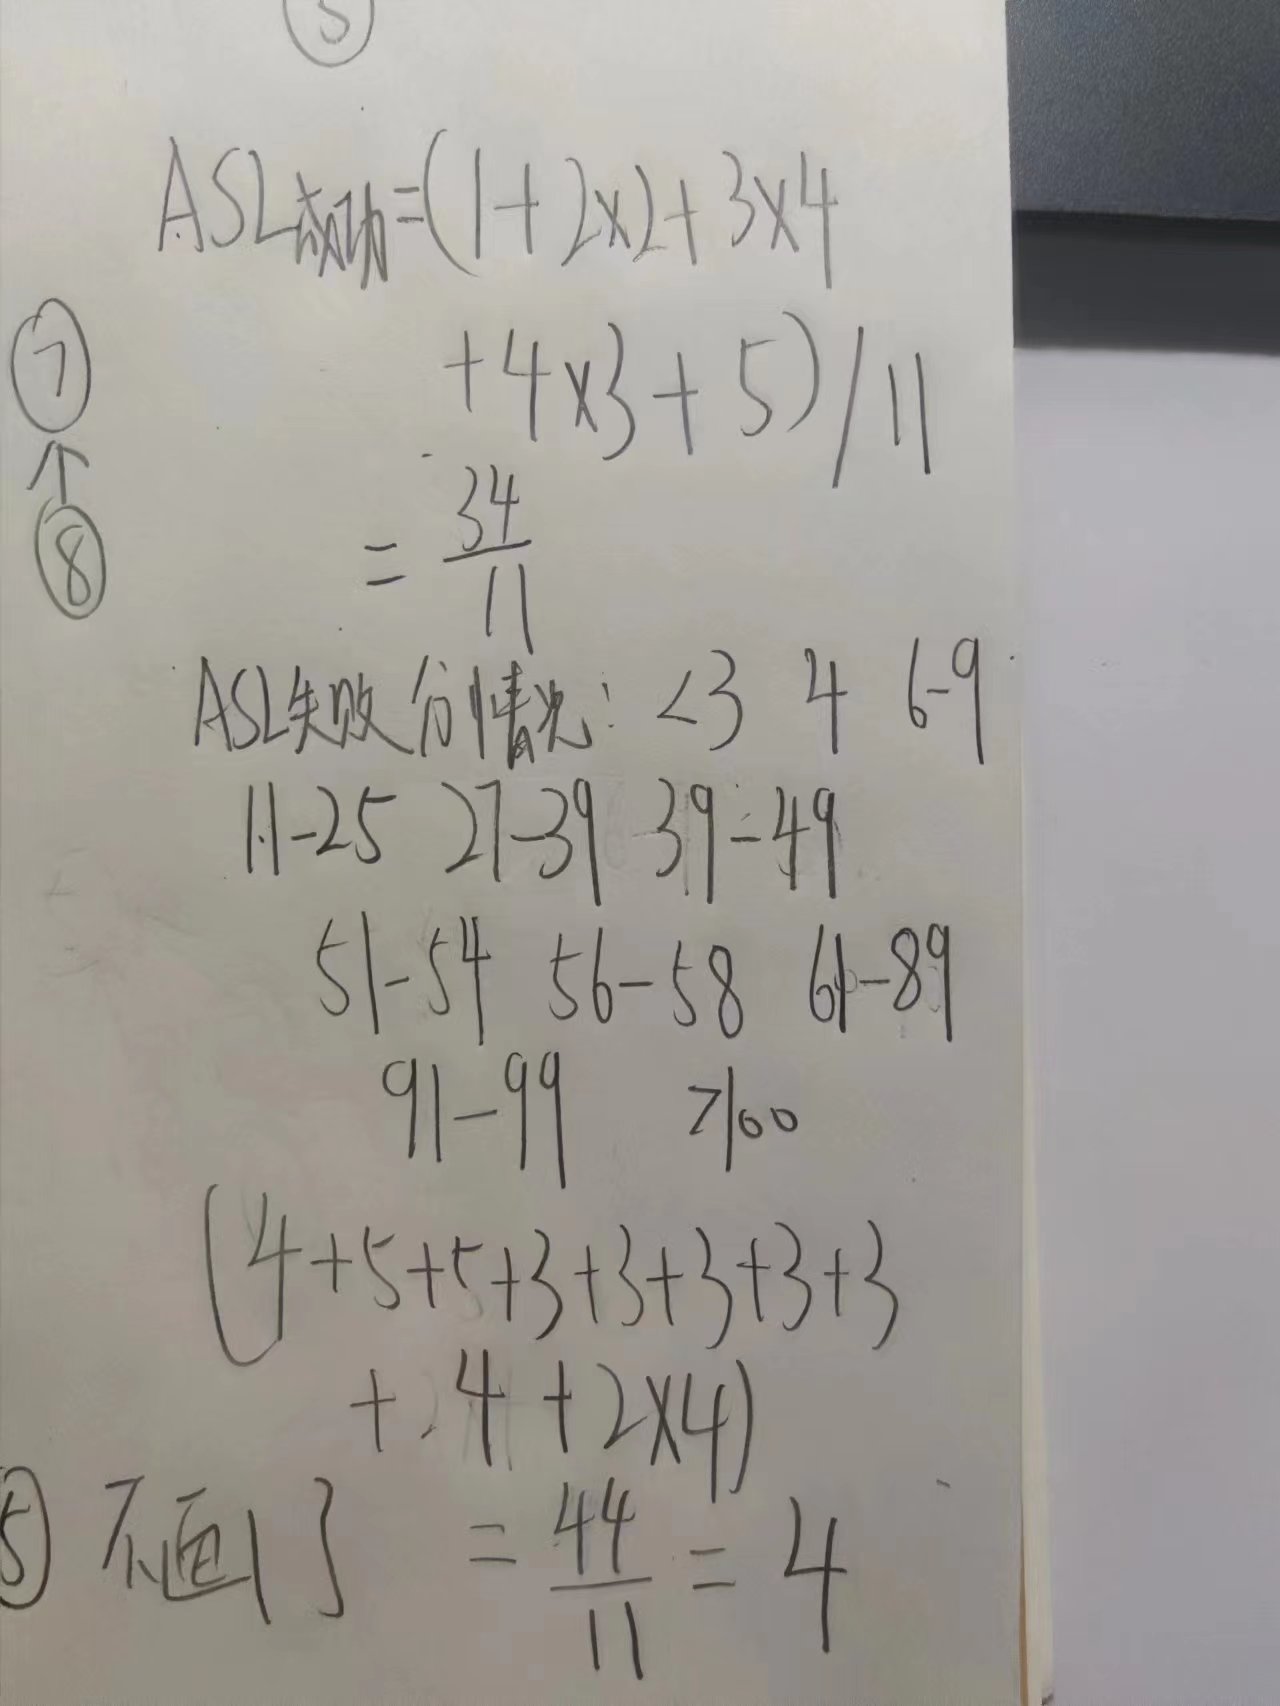 5
ASL成功=(1+2×2+3×4
7
+4×3+5)/11
8
=34/11
ASL失败分情况: <3 4 6-9
11-25 27-39 39-49
51-54 56-58 61-89
91-99 >100
(4+5+5+3+3+3+3+3
+4+2×4)
5 不画了 =44/11=4